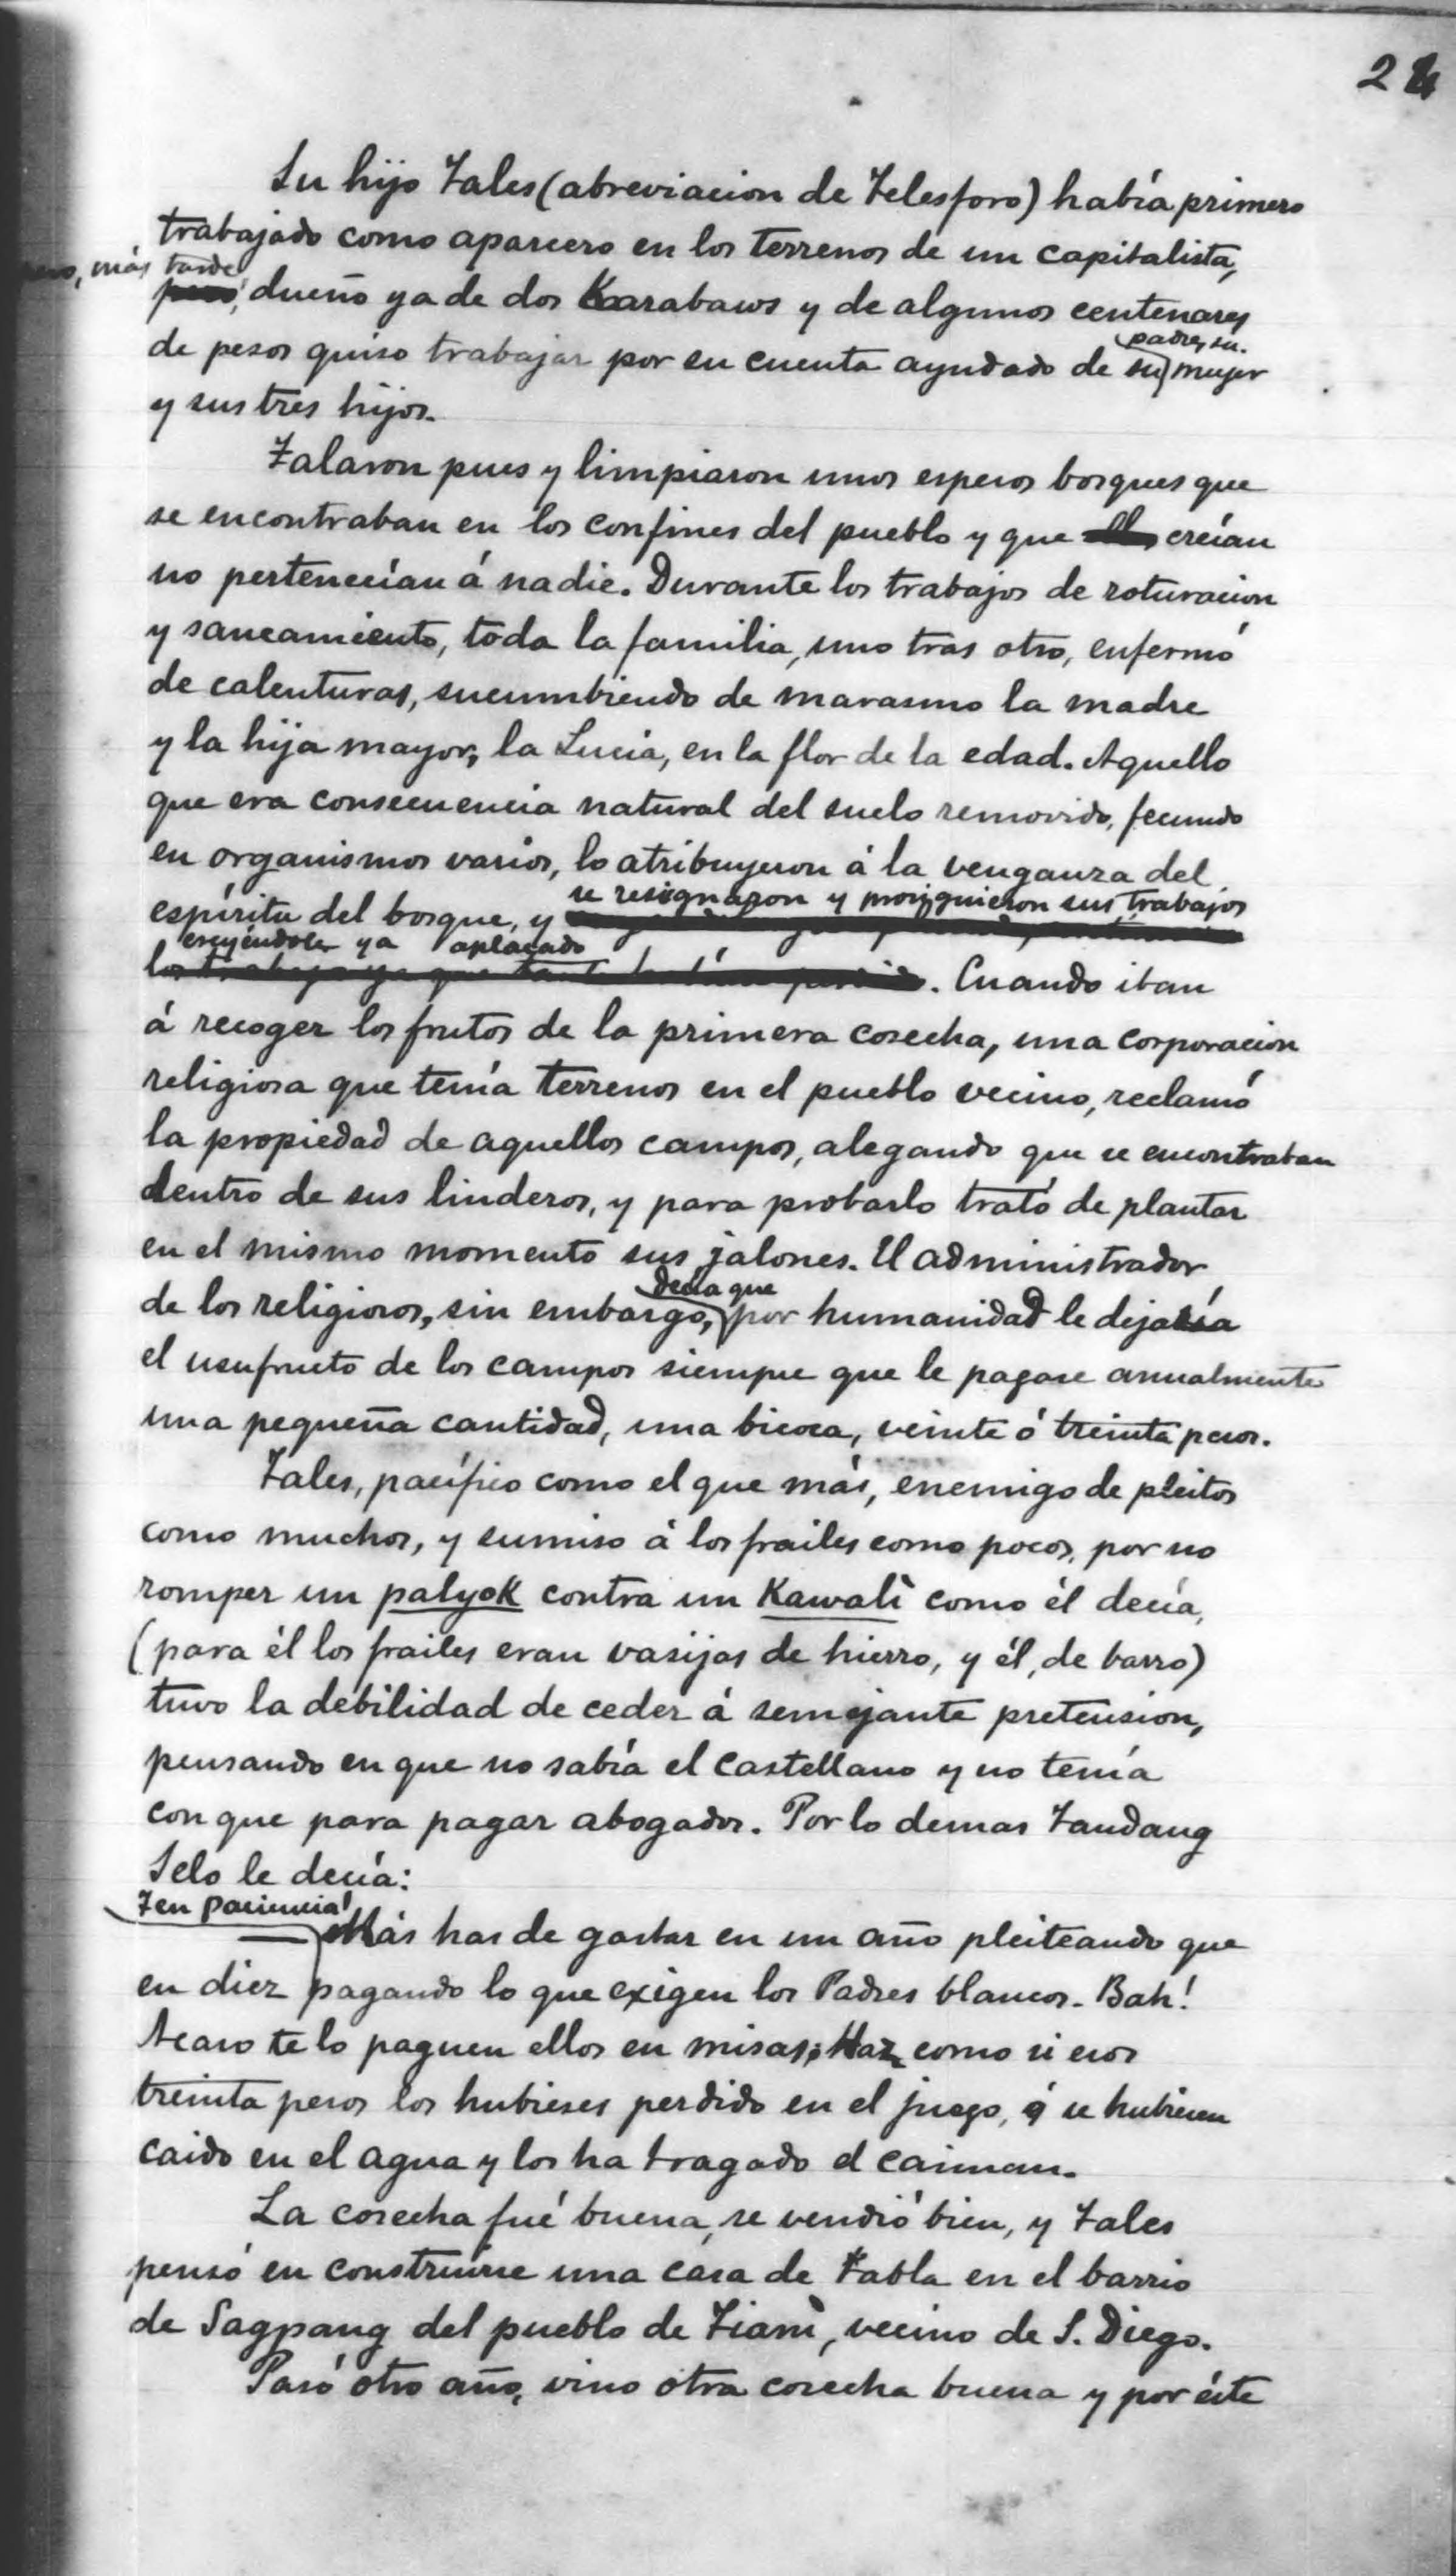 24
Su hijo Tales (abreviacion de Telesforo) había primero
trabajado como aparcero en los terrenos de un capitalista,
pero, más tarde
dueño ya de dos Karabaws y de algunos centenares
padre, su
de pesos quiso trabajar por su cuenta ayudado de su mujer
y sus tres hijos.
Talaron pues y limpiaron unos espesos bosques que
se encontraban en los confines del pueblo y que creían
no pertenecían á nadie. Durante los trabajos de roturacion
y saneamiento, toda la familia, uno tras otro, enfermó
de calenturas, sucumbiendo de marasmo la madre
y la hija mayor, la Lucia, en la flor de la edad. Aquello
que era consecuencia natural del suelo removido, fecundo
en organismos varios, lo atribuyeron á la venganza del
se resignaron y prosiguieron sus trabajos
espíritu del bosque, y
creyéndole ya aplacado
. Cuando iban
á recoger los frutos de la primera cosecha, una corporacion
religiosa que tenía terrenos en el pueblo vecino, reclamó
la propiedad de aquellos campos, alegando que se encontraban
dentro de sus linderos, y para probarlo trató de plantar
en el mismo momento sus jalones. El administrador
decía que
de los religiosos, sin embargo, por humanidad le dejaría
el usufructo de los campos siempre que le pagase anualmente
una pequeña cantidad, una bicoca, veinte ó treinta pesos.
Tales, pacífico como el que más, enemigo de pleitos
como muchos, y sumiso á los frailes como pocos, por no
romper un palyok contra un Kawalì como él decía,
(para él los frailes eran vasijas de hierro, y él, de barro)
tuvo la debilidad de ceder á semejante pretension,
pensando en que no sabía el castellano y no tenía
con que para pagar abogados. Por lo demas Tandang
Selo le decía:
Ten paciencia!
— Más has de gastar en un año pleiteando que
en diez pagando lo que exigen los Padres blancos. Bah!
Acaso te lo paguen ellos en misas; Haz como si esos
treinta pesos los hubieses perdido en el juego, ó se hubiesen
caido en el agua y los ha tragado el caiman.
La cosecha fué buena, se vendió bien, y Tales
pensó en construirse una casa de tabla en el barrio
de Sagpang del pueblo de Tianì, vecino de S. Diego.
Pasó otro año, vino otra cosecha buena y por éste